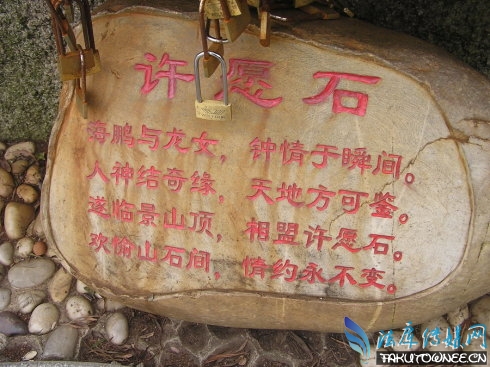 许愿石
海鹏与龙女，钟情于瞬间。
人神结奇缘，天地方可鉴。
遂临景山顶，相盟许愿石。
欢愉山石间，情约永不变。
法库传媒网
FAKUTOWNEE.CN